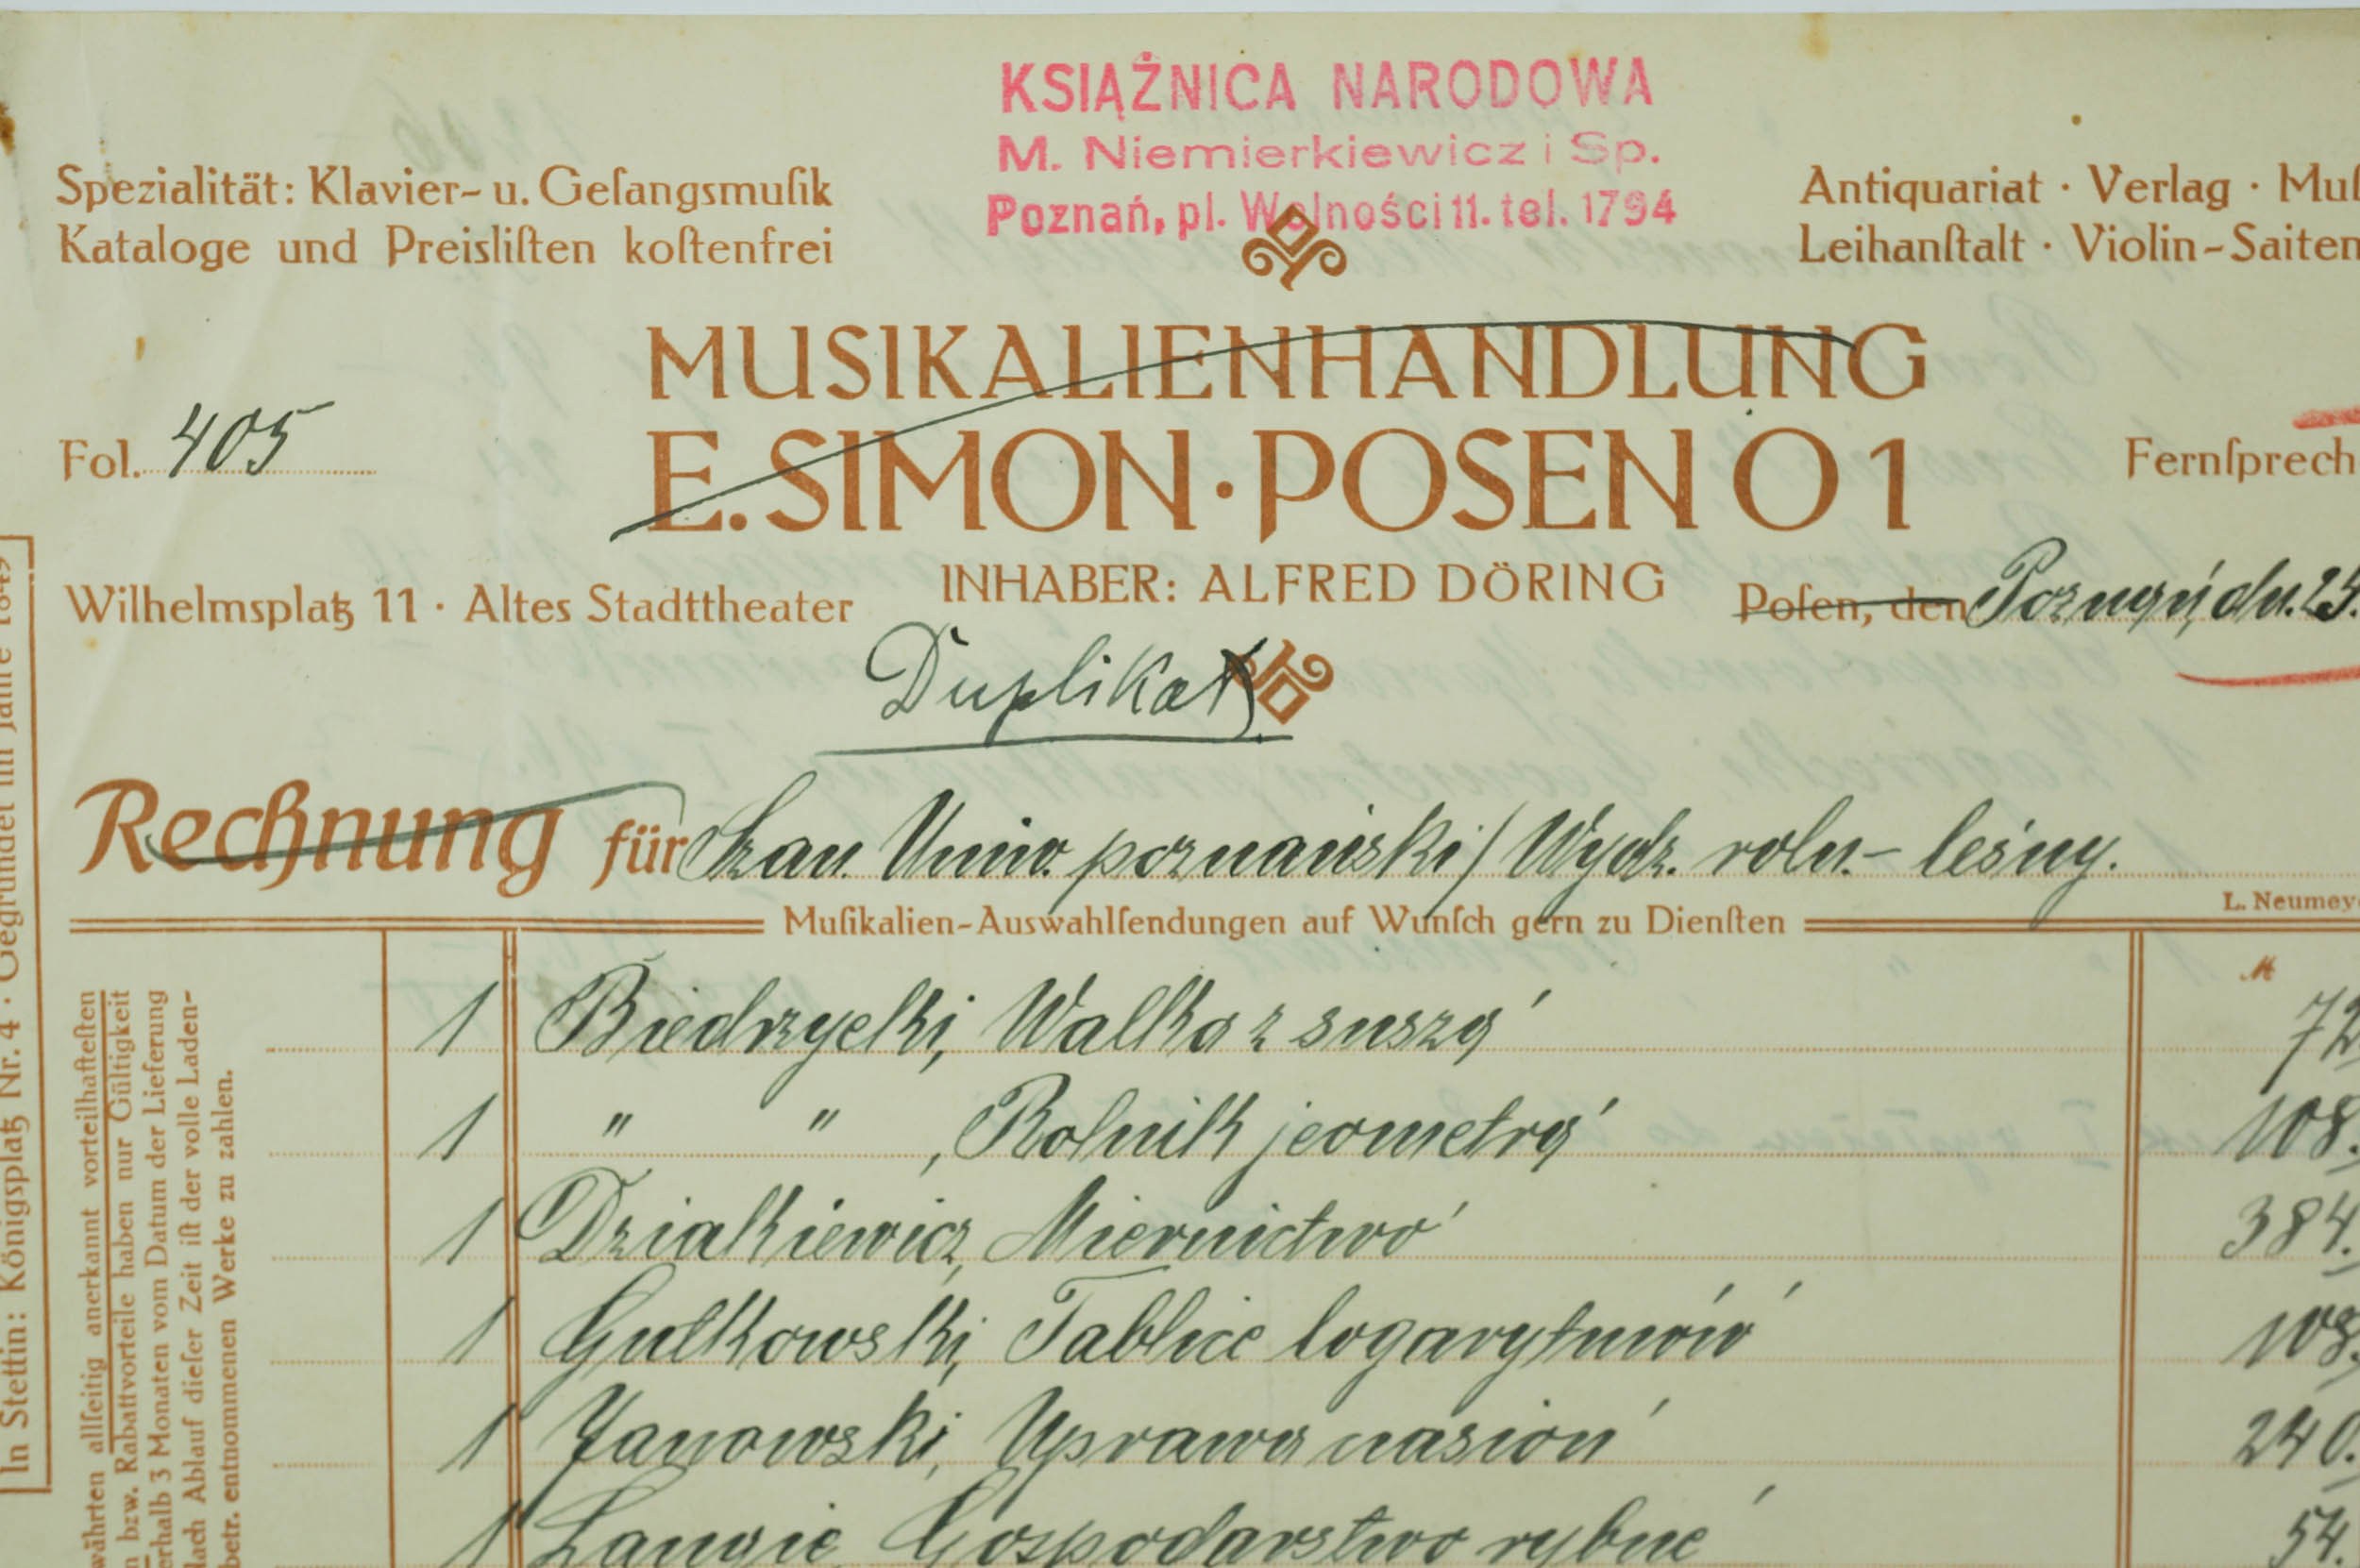 KSIĄŻNICA NARODOWA
M. Niemierkiewicz i Sp.
Poznań, pl. Wolności 11. tel. 1794
Spezialität: Klavier- u. Geſangsmuſik
Kataloge und Preisliſten koſtenfrei
Antiquariat · Verlag · Muſ
Leihanſtalt · Violin-Saiten
MUSIKALIENHANDLUNG
E. SIMON · POSEN O 1
Fol. 405
Fernſprech
Wilhelmsplatz 11 · Altes Stadttheater
INHABER: ALFRED DÖRING
Poſen, den Poznań, dn. 25.
Duplikat
Rechnung für Szan. Uniw. poznański / Wydz. roln.- leśny.
Muſikalien-Auswahlſendungen auf Wunſch gern zu Dienſten
L. Neumey
M
1 Biedrzycki, Walka z suszą 72
1 " " , Rolnik jeometrą 108.
1 Działkiewicz, Miernictwo 384.
1 Gutkowski, Tablice logarytmów 108.
1 Janowski, Uprawa nasion 240.
1 Gospodarstwo rybne 54.
In Stettin: Königsplatz Nr. 4 · Gegründet im Jahre
währten allſeitig anerkannt vorteilhafteſten
bzw. Rabattvorteile haben nur Gültigkeit
erhalb 3 Monaten vom Datum der Lieferung
Nach Ablauf dieſer Zeit iſt der volle Laden-
betr. entnommenen Werke zu zahlen.